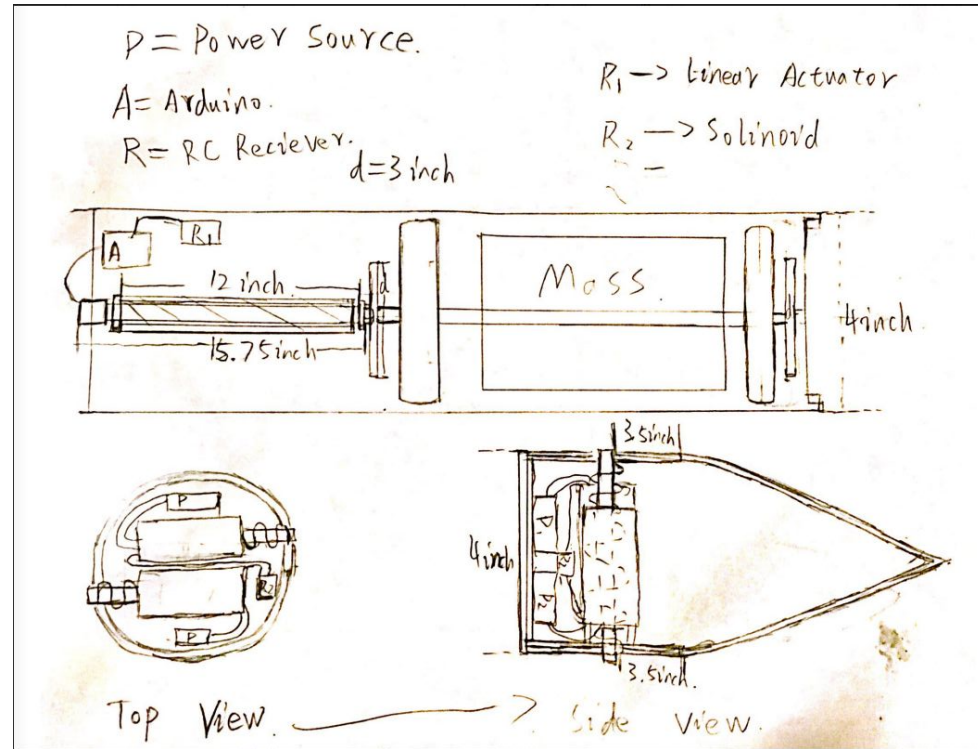 P = Power Source.
A = Arduino.
R = RC Reciever.
R1 -> Linear Actuator
R2 -> Solinoid
d=3inch
A
R1
12 inch
d
15.75inch
Mass
4inch
3.5inch
P
P
R2
4inch
3.5inch
Top View -> Side View.